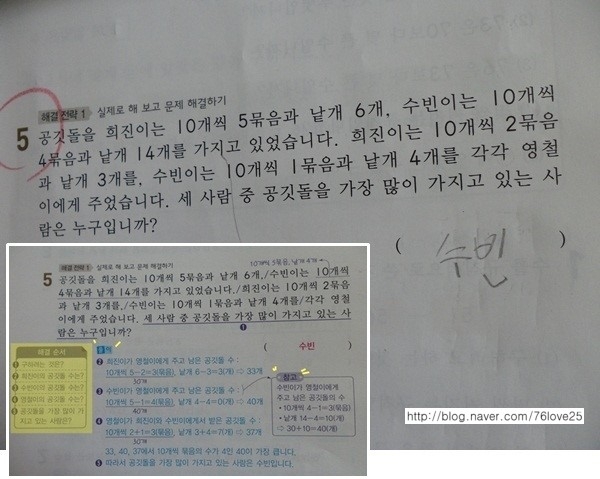 해결 전략 1 실제로 해 보고 문제 해결하기
5 공깃돌을 희진이는 10개씩 5묶음과 낱개 6개, 수빈이는 10개씩
4묶음과 낱개 14개를 가지고 있었습니다. 희진이는 10개씩 2묶음
과 낱개 3개를, 수빈이는 10개씩 1묶음과 낱개 4개를 각각 영철
이에게 주었습니다. 세 사람 중 공깃돌을 가장 많이 가지고 있는 사
람은 누구입니까?
( 수빈 )
해결 전략 1 실제로 해 보고 문제 해결하기
10개씩 5묶음, 낱개 4개
5 공깃돌을 희진이는 10개씩 5묶음과 낱개 6개,/수빈이는 10개씩
4묶음과 낱개 14개를 가지고 있었습니다./희진이는 10개씩 2묶음
과 낱개 3개를,/수빈이는 10개씩 1묶음과 낱개 4개를/각각 영철
이에게 주었습니다. 세 사람 중 공깃돌을 가장 많이 가지고 있는 사
람은 누구입니까?
❶
( 수빈 )
해결 순서
❶ 구하려는 것은?
❷ 희진이의 공깃돌 수는?
❸ 수빈이의 공깃돌 수는?
❹ 영철이의 공깃돌 수는?
❺ 공깃돌을 가장 많이 가
지고 있는 사람은?
❷ 희진이가 영철이에게 주고 남은 공깃돌 수 :
10개씩 5-2=3(묶음), 낱개 6-3=3(개) ⇨ 33개
30개
❸ 수빈이가 영철이에게 주고 남은 공깃돌 수 :
10개씩 5-1=4(묶음), 낱개 4-4=0(개) ⇨ 40개
40개
❹ 영철이가 희진이와 수빈이에게서 받은 공깃돌 수 :
10개씩 2+1=3(묶음), 낱개 3+4=7(개) ⇨ 37개
30개
33, 40, 37에서 10개씩 묶음의 수가 4인 40이 가장 큽니다.
❺ 따라서 공깃돌을 가장 많이 가지고 있는 사람은 수빈입니다.
참고
수빈이가 영철이에게
주고 남은 공깃돌의 수
• 10개씩 4-1=3(묶음)
• 낱개 14-4=10(개)
⇨ 30+10=40(개)
http://blog.naver.com/76love25